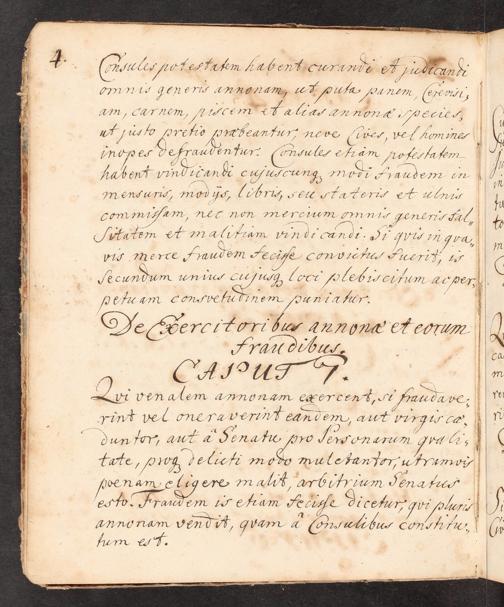 4.
Consules potestatem habent curandi et judicandi
omnis generis annonam, ut puta panem, Cerevisi,
am, carnem, piscem et alias annonæ species,
ut justo pretio præbeantur, neve Cives, vel homines
inopes defraudentur. Consules etiam potestatem
habent vindicandi cujuscunq modi fraudem in
mensuris, modijs, libris, seu stateris et ulnis
commissam, nec non mercium omnis generis fal„
sitatem et malitiam vindicandi. Si qvis in qva„
vis merce fraudem fecisse convictus fuerit, is
secundum unius cujusq loci plebiscitum ac per„
petuam consvetudinem puniatur.
De Exercitoribus annonæ et eorum
fraudibus.
CAPUT 7.
Qvi venalem annonam exercent, si fraudave„
rint vel oneraverint eandem, aut virgis cæ„
duntor, aut â Senatu pro Personarum qvali„
tate, proq delicti modo mulctantor, utramvis
poenam eligere malit, arbitrium Senatus
esto. Fraudem is etiam fecisse dicetur, qvi pluris
annonam vendit, qvam â Consulibus constitu„
tum est.